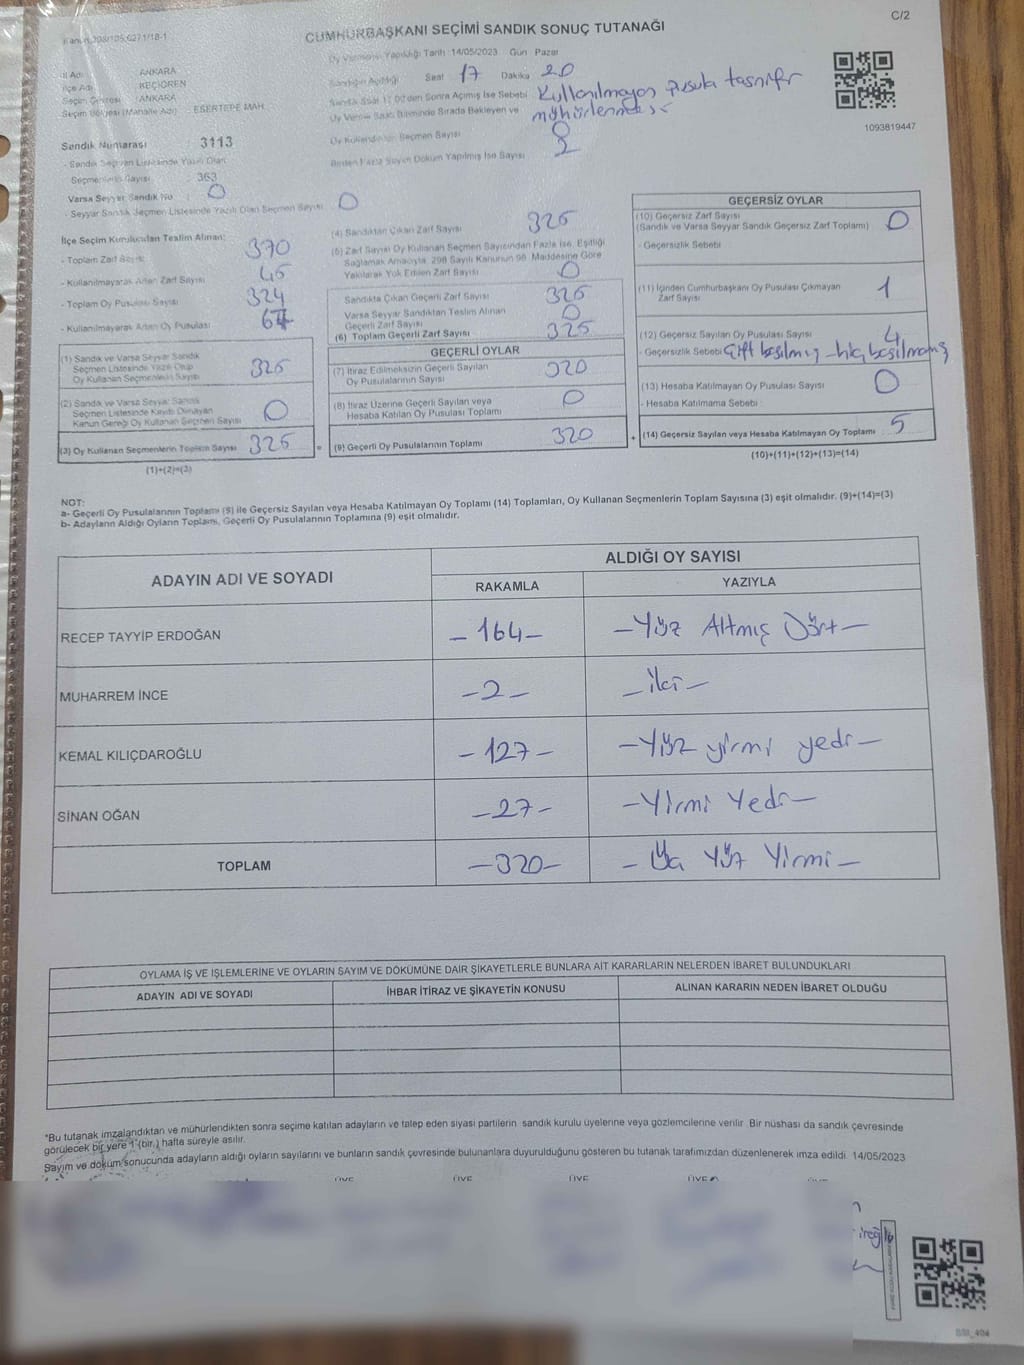 C/2
CUMHURBAŞKANI SEÇİMİ SANDIK SONUÇ TUTANAĞI
Oy Vermenin Yapıldığı Tarih : 14/05/2023 Gün Pazar
İl Adı ANKARA
İlçe Adı KEÇİÖREN
Seçim Çevresi ANKARA
Seçim Bölgesi (Mahalle Adı) ESERTEPE MAH.
Sandığın Açıldığı Saat 17 Dakika 20
Sandık Saat 17.00'den Sonra Açılmış İse Sebebi Kullanılmayan pusula tasnifi
Oy Verme Saati Bitiminde Sırada Bekleyen ve mühürlenmesi
Oy Kullandırılan Seçmen Sayısı 0
Birden Fazla Sayım Döküm Yapılmış İse Sayısı 2
1093819447
Sandık Numarası : 3113
- Sandık Seçmen Listesinde Yazılı Olan
Seçmenlerin Sayısı : 363
Varsa Seyyar Sandık No : 0
- Seyyar Sandık Seçmen Listesinde Yazılı Olan Seçmen Sayısı 0
İlçe Seçim Kurulundan Teslim Alınan:
- Toplam Zarf Sayısı 370
- Kullanılmayarak Artan Zarf Sayısı 45
- Toplam Oy Pusulası Sayısı
- Kullanılmayarak Artan Oy Pusulası
(1) Sandık ve Varsa Seyyar Sandık
Seçmen Listesinde Yazılı Olup
Oy Kullanan Seçmenlerin Sayısı 325
(2) Sandık ve Varsa Seyyar Sandık
Seçmen Listesinde Kaydı Olmayan
Kanun Gereği Oy Kullanan Seçmen Sayısı 0
(3) Oy Kullanan Seçmenlerin Toplam Sayısı 325 =
(1)+(2)=(3)
(4) Sandıktan Çıkan Zarf Sayısı 325
(5) Zarf Sayısı Oy Kullanan Seçmen Sayısından Fazla İse, Eşitliği
Sağlamak Amacıyla, 298 Sayılı Kanunun 98. Maddesine Göre
Yakılarak Yok Edilen Zarf Sayısı 0
Sandıkta Çıkan Geçerli Zarf Sayısı 325
Varsa Seyyar Sandıktan Teslim Alınan
Geçerli Zarf Sayısı 0
(6) Toplam Geçerli Zarf Sayısı 325
GEÇERLİ OYLAR
(7) İtiraz Edilmeksizin Geçerli Sayılan
Oy Pusulalarının Sayısı 320
(8) İtiraz Üzerine Geçerli Sayılan veya
Hesaba Katılan Oy Pusulası Toplamı 0
(9) Geçerli Oy Pusulalarının Toplamı 320 +
GEÇERSİZ OYLAR
(10) Geçersiz Zarf Sayısı
(Sandık ve Varsa Seyyar Sandık Geçersiz Zarf Toplamı) 0
- Geçersizlik Sebebi
(11) İçinden Cumhurbaşkanı Oy Pusulası Çıkmayan
Zarf Sayısı 1
(12) Geçersiz Sayılan Oy Pusulası Sayısı 4
- Geçersizlik Sebebi Çift basılmış - hiç basılmamış
(13) Hesaba Katılmayan Oy Pusulası Sayısı 0
- Hesaba Katılmama Sebebi :
(14) Geçersiz Sayılan veya Hesaba Katılmayan Oy Toplamı 5
(10)+(11)+(12)+(13)=(14)
NOT:
a- Geçerli Oy Pusulalarının Toplamı (9) ile Geçersiz Sayılan veya Hesaba Katılmayan Oy Toplamı (14) Toplamları, Oy Kullanan Seçmenlerin Toplam Sayısına (3) eşit olmalıdır. (9)+(14)=(3)
b- Adayların Aldığı Oyların Toplamı, Geçerli Oy Pusulalarının Toplamına (9) eşit olmalıdır.
ADAYIN ADI VE SOYADI ALDIĞI OY SAYISI
RAKAMLA YAZIYLA
RECEP TAYYİP ERDOĞAN - 164 - - Yüz Altmış Dört -
MUHARREM İNCE - 2 - - iki -
KEMAL KILIÇDAROĞLU - 127 - - Yüz yirmi yedi -
SİNAN OĞAN - 27 - - Yirmi Yedi -
TOPLAM - 320 - - Üç Yüz Yirmi -
OYLAMA İŞ VE İŞLEMLERİNE VE OYLARIN SAYIM VE DÖKÜMÜNE DAİR ŞİKAYETLERLE BUNLARA AİT KARARLARIN NELERDEN İBARET BULUNDUKLARI
ADAYIN ADI VE SOYADI İHBAR İTİRAZ VE ŞİKAYETİN KONUSU ALINAN KARARIN NEDEN İBARET OLDUĞU
*Bu tutanak imzalandıktan ve mühürlendikten sonra seçime katılan adayların ve talep eden siyasi partilerin sandık kurulu üyelerine veya gözlemcilerine verilir. Bir nüshası da sandık çevresinde
görülecek bir yere 1 (bir ) hafta süreyle asılır.
Sayım ve döküm sonucunda adayların aldığı oyların sayılarını ve bunların sandık çevresinde bulunanlara duyurulduğunu gösteren bu tutanak tarafımızdan düzenlenerek imza edildi. 14/05/2023
ÜYE ÜYE ÜYE ÜYE